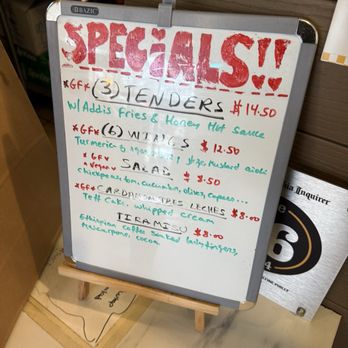 BAZIC
SPECiALS!!
*GF* (3) TENDERS $14.50
w/Addis Fries & Honey Hot Sauce
*GF* (6) WINGS $12.50
Turmeric mustard aioli
*GF*
*Vegan* SALAD $8.50
chickpeas, tom, cucumber, olives, capers...
*GF* CARDAMOM TRES LECHES $8.00
Teff Cake, whipped cream
TIRAMISU $8.00
Ethiopian coffee soaked ladyfingers,
mascarpone, cocoa
Inquirer
6